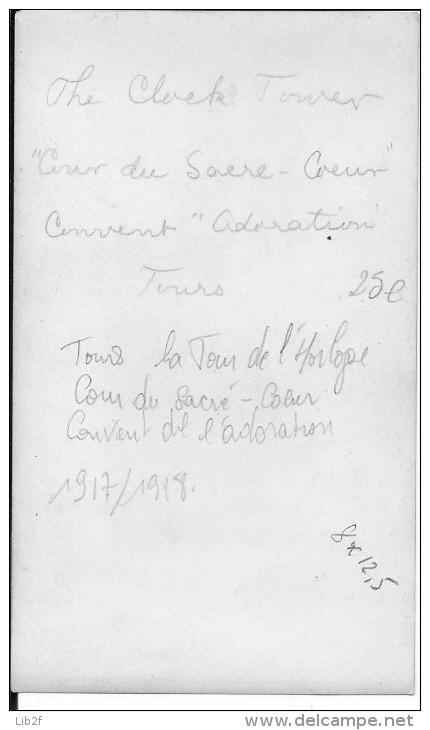 The Clock Tower
"Cour du Sacre-Coeur"
Convent "Adoration
Tours 25€
Tours La Tour de l'Horloge
Cour du Sacré-Coeur
Couvent de l'adoration
1917/1918.
8x12,5
Lib2f
www.delcampe.net